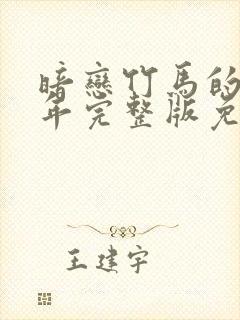 暗戀竹馬的
年完整版免
王建宇